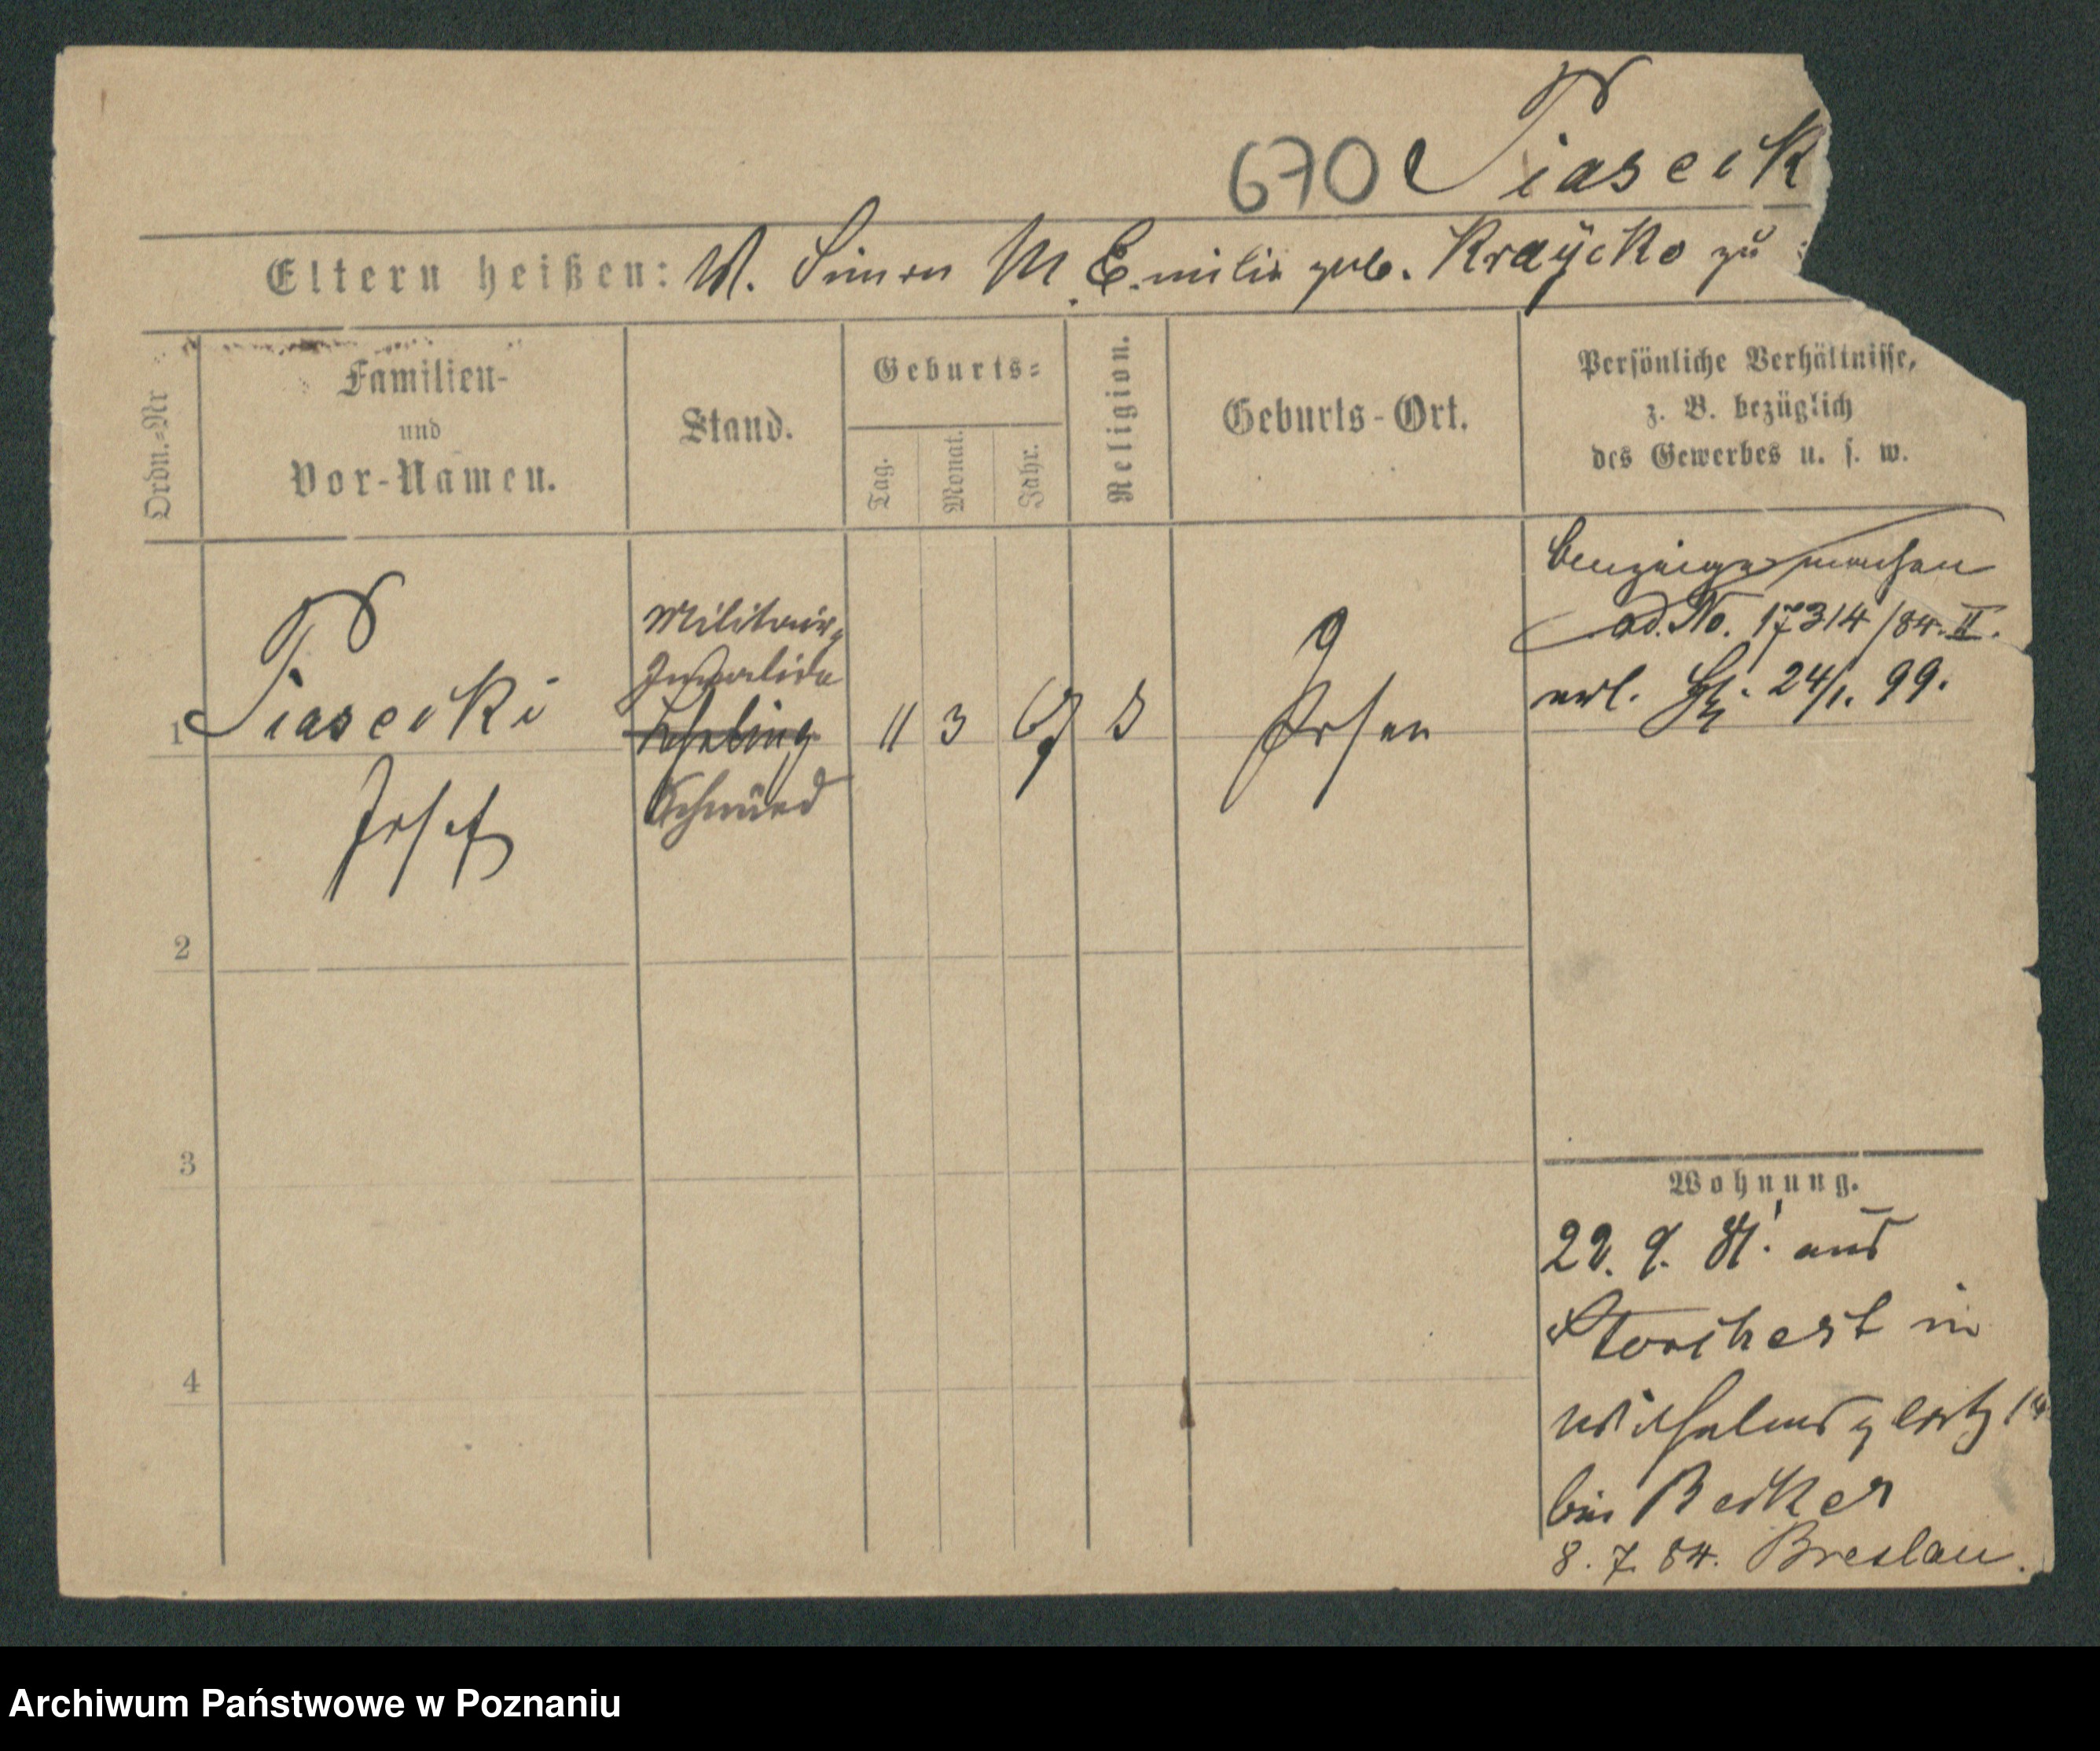 670 Piaseck
Eltern heißen: V. Simon M. Emilie geb. Kraÿcka zu
Ordn.=Nr
Familien-
und
Vor-Namen.
Stand.
Geburts=
Tag.
Monat.
Jahr.
Religion.
Geburts-Ort.
Persönliche Verhältnisse,
z. B. bezüglich
des Gewerbes u. s. w.
1
Piasecki
Josef
Militair=
Invalide
Lehrling
Schmied
11 3 67
Posen
ad. No. 17314/84. II.
erl. 24/1. 99.
2
3
4
Wohnung.
29. 9. 81. aus
Storchest in
Wilhelmsplatz 14
bei Becker
8. 7. 84. Breslau.
Archiwum Państwowe w Poznaniu